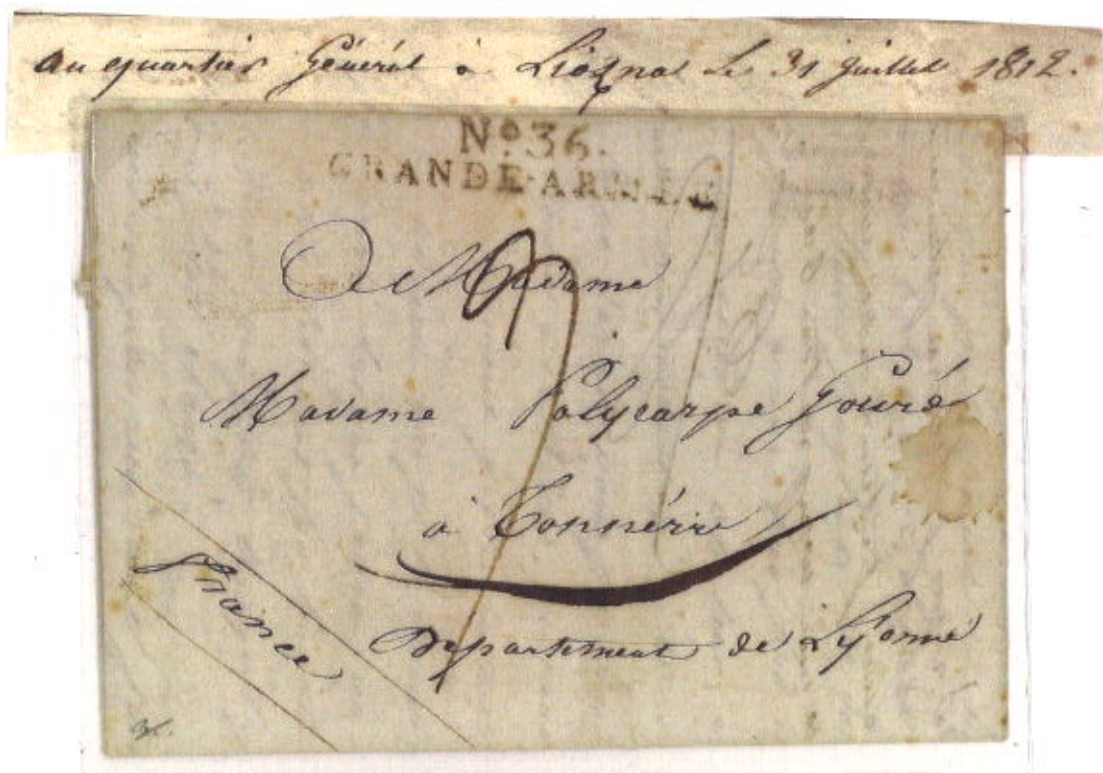 au quartier Général à Liozna le 31 juillet 1812.
No. 36.
GRANDE-ARMÉE
A Madame
Madame Polycarpe Gouré
à Tonnérre
Département de Lyonne
France